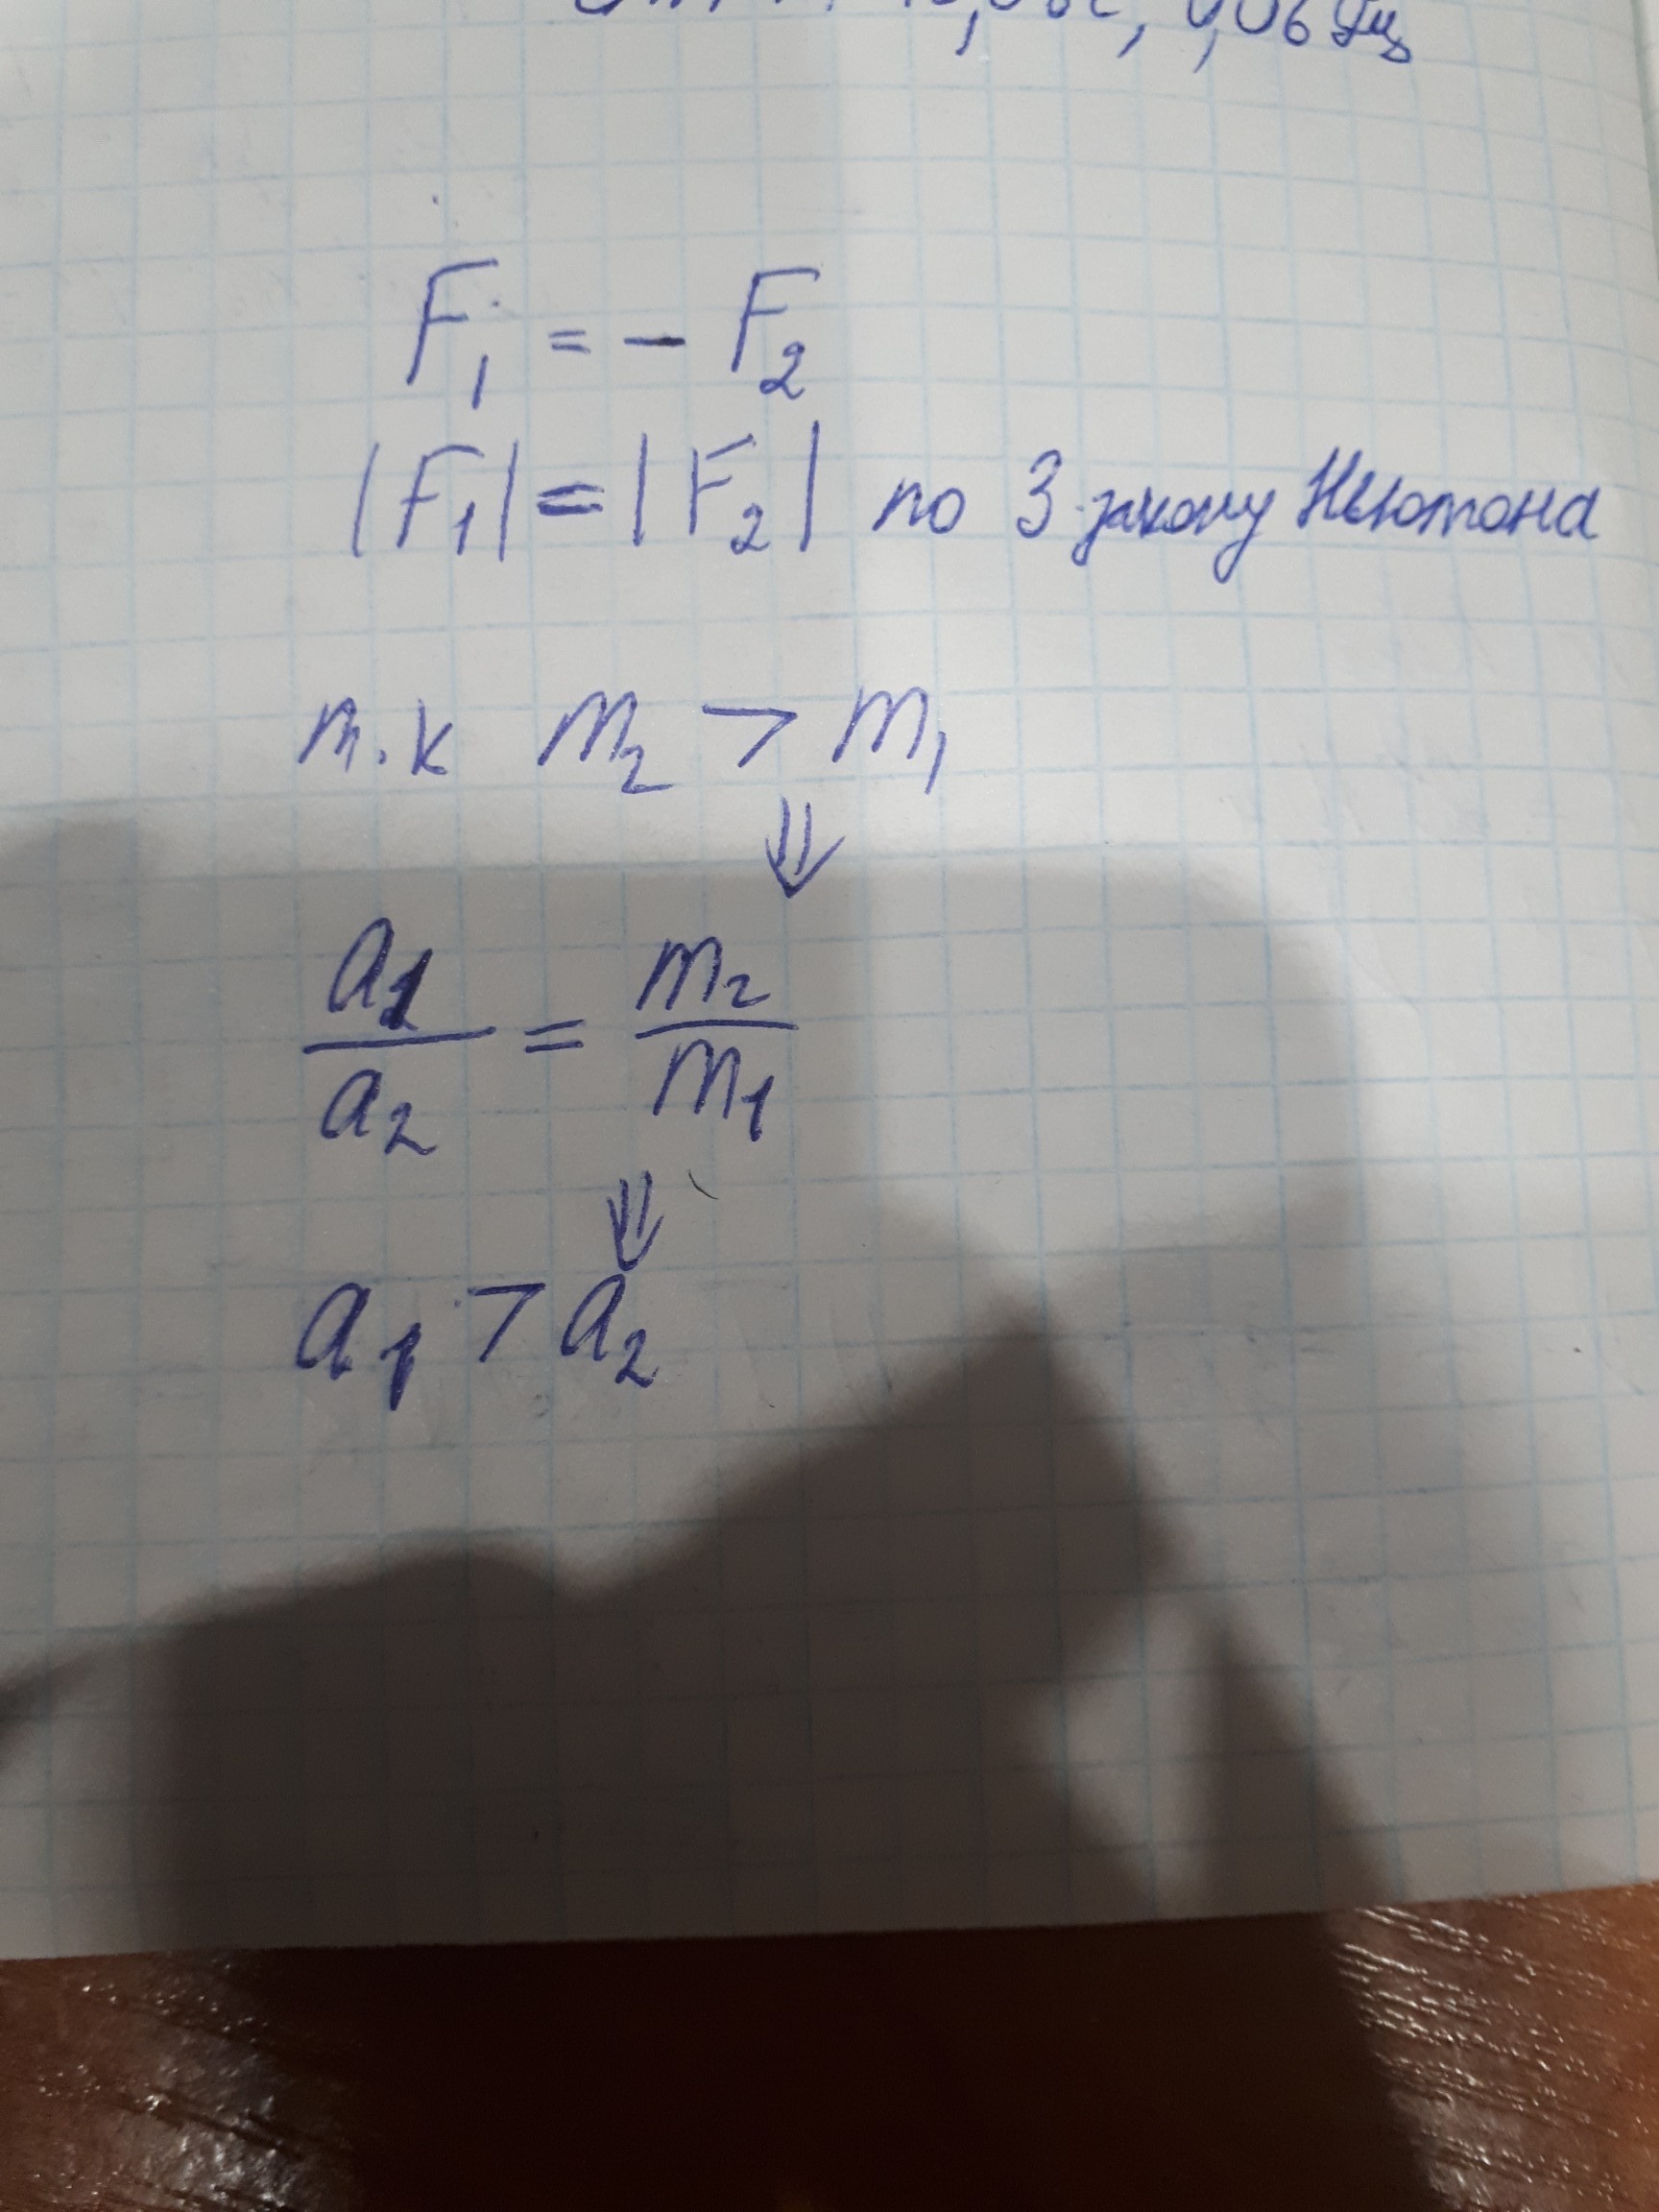 0,06 Гц
F₁ = - F₂
|F₁| = |F₂| по 3 закону Ньютона
т.к m₂ > m₁
⇓
a₁/a₂ = m₂/m₁
⇓
a₁ > a₂